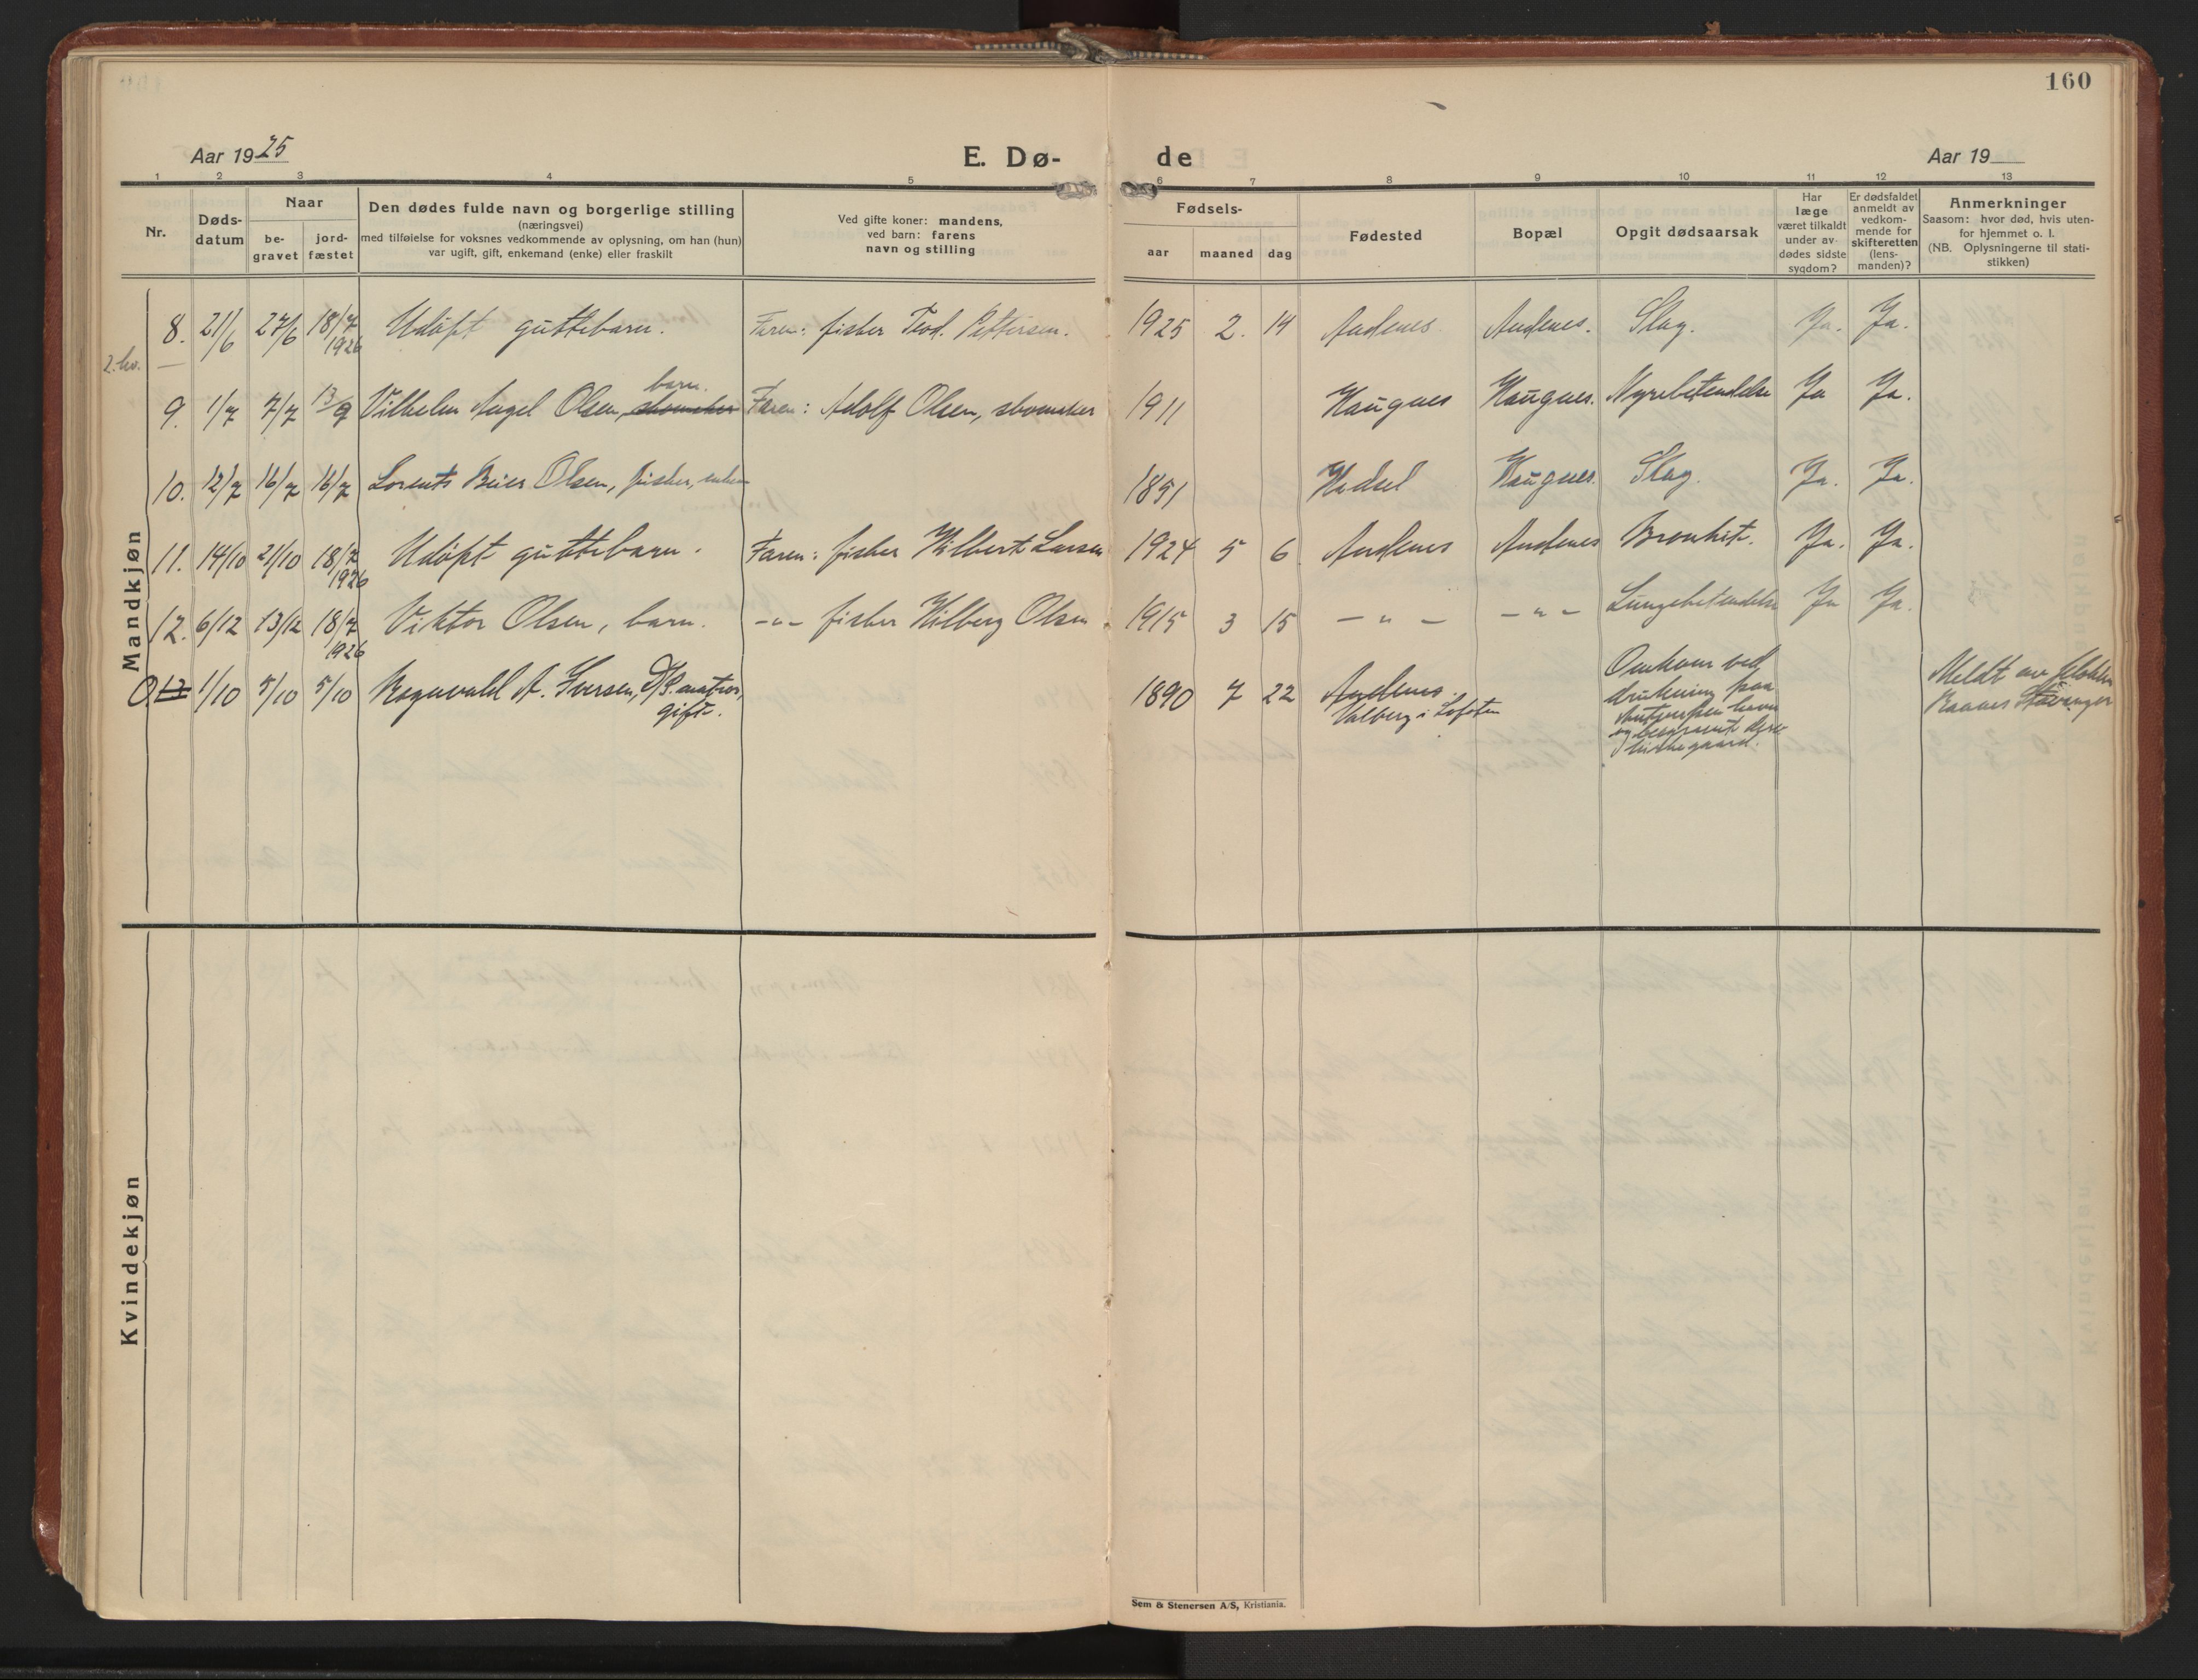 160
Aar 1925
E. Dø-
de
Aar 19
1 2 3 4 5 6 7 8 9 10 11 12 13
Nr.
Døds-
datum
Naar
be-
gravet
jord-
fæstet
Den dødes fulde navn og borgerlige stilling
(næringsvei)
med tilføielse for voksnes vedkommende av oplysning, om han (hun)
var ugift, gift, enkemand (enke) eller fraskilt
Ved gifte koner: mandens,
ved barn: farens
navn og stilling
Fødsels-
aar
maaned
dag
Fødested
Bopæl
Opgit dødsaarsak
Har
læge
været tilkaldt
under av-
dødes sidste
sygdom?
Er dødsfaldet
anmeldt av
vedkom-
mende for
skifteretten
(lens-
manden)?
Anmerkninger
Saasom: hvor død, hvis uten-
for hjemmet o. l.
(NB. Oplysningerne til stati-
stikken)
Mandkjøn
8. 21/6 27/6 18/7 1926 Udöpt guttebarn. Faren: fisker Teod. Pettersen. 1925 2. 14 Andenes Andenes. Slag. Ja. Ja.
2. kv.
9. 1/7 7/7 13/9 Vilhelm Angel Olsen, skomaker barn. Faren: Adolf Olsen, skomaker 1911 Haugnes Haugnes. Nyrebetendelse Ja Ja.
10. 12/7 16/7 16/7 Lorents Beier Olsen, fisker, enkem 1851 Hadsel Haugnes. Slag. Ja. Ja.
11. 14/10 21/10 18/7 1926 Udöpt guttebarn. Faren: fisker Hilbert Larsen 1924 5 6 Andenes Andenes Bronkit. Ja. Ja.
12. 6/12 13/12 18/7 1926 Viktor Olsen, barn. -"- fisker Hilberg Olsen 1915 3 15 - " - - " - Lungebetendelse Ja Ja.
0. 13 1/10 5/10 5/10 Ragnvald A. Iversen, D/S. matros, gift. 1890 7 22 Andenes.
Valberg i Lofoten
Omkom ved
drukning paa
Antwerpen havn
og begravet
kirkegaard.
Meldt av
Stavanger
Kvindekjøn
Sem & Stenersen A/S, Kristiania.